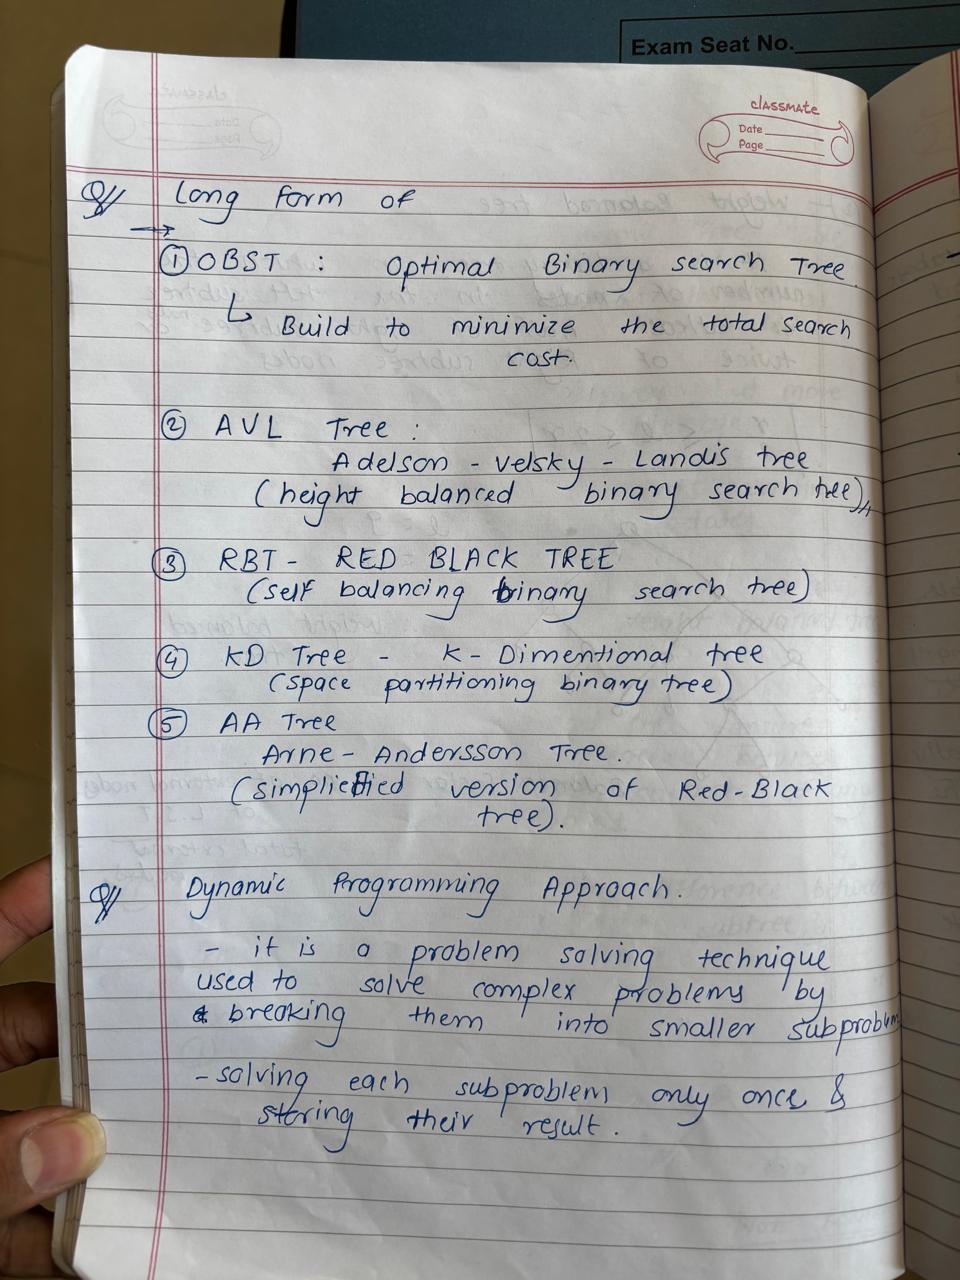 Exam Seat No.
classmate
Date
Page
Q// Long Form of
→
① OBST : Optimal Binary search Tree.
↳ Build to minimize the total search
cost.
② AVL Tree :
Adelson - Velsky - Landis tree
(height balanced binary search tree)
③ RBT - RED BLACK TREE
(self balancing binary search tree)
④ KD Tree - K - Dimentional tree
(space partitioning binary tree)
⑤ AA Tree
Arne - Andersson Tree.
(simplicified version of Red-Black
tree).
Q// Dynamic Programming Approach.
- it is a problem solving technique
used to solve complex problems by
breaking them into smaller subproblem
- solving each subproblem only once &
storing their result.